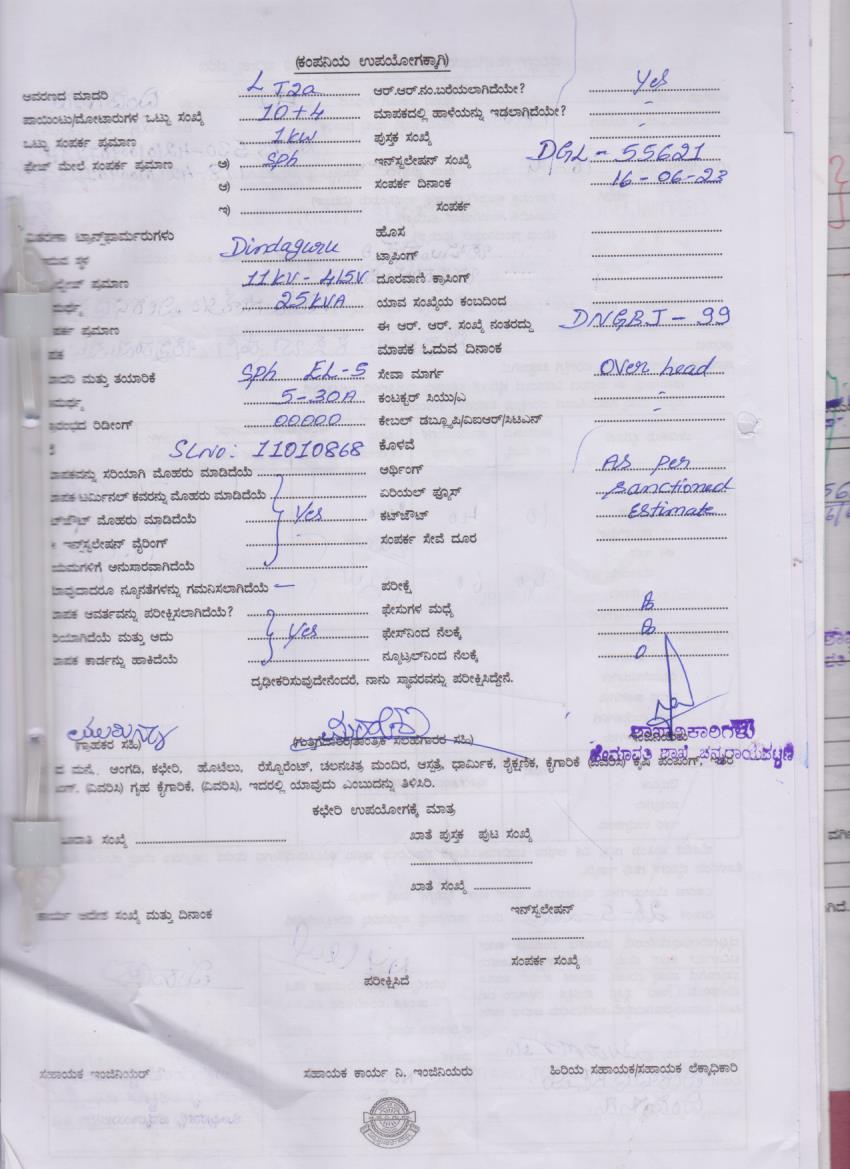 (ಕಂಪನಿಯ ಉಪಯೋಗಕ್ಕಾಗಿ)
ಆವರಣದ ಮಾದರಿ LT2a ಆರ್.ಆರ್.ನಂ.ಬರೆಯಲಾಗಿದೆಯೇ? Yes
ಪಾಯಿಂಟು/ಮೋಟಾರುಗಳ ಒಟ್ಟು ಸಂಖ್ಯೆ 10+4 ಮಾಪಕದಲ್ಲಿ ಹಾಳೆಯನ್ನು ಇಡಲಾಗಿದೆಯೇ? -
ಒಟ್ಟು ಸಂಪರ್ಕ ಪ್ರಮಾಣ 1kw ಪುಸ್ತಕ ಸಂಖ್ಯೆ -
ಫೇಜ್ ಮೇಲೆ ಸಂಪರ್ಕ ಪ್ರಮಾಣ - ಅ) sph ಇನ್‌ಸ್ಟಲೇಷನ್ ಸಂಖ್ಯೆ DGL-55621
ಆ) ಸಂಪರ್ಕ ದಿನಾಂಕ 16-06-23
ಇ) ಸಂಪರ್ಕ
ವಿತರಣಾ ಟ್ರಾನ್ಸ್‌ಫಾರ್ಮರುಗಳು Dindaguru ಹೊಸ
ಸ್ಥಳ ಟ್ಯಾಪಿಂಗ್
ಪ್ರಮಾಣ 11KV-415V ದೂರವಾಣಿ ಕ್ರಾಸಿಂಗ್
25KVA ಯಾವ ಸಂಖ್ಯೆಯ ಕಂಬದಿಂದ
ಪ್ರಮಾಣ ಈ ಆರ್. ಆರ್. ಸಂಖ್ಯೆ ನಂತರದ್ದು DNGBJ-99
ಮಾಪಕ ಓದುವ ದಿನಾಂಕ
ಮಾದರಿ ಮತ್ತು ತಯಾರಿಕೆ sph EL-5 ಸೇವಾ ಮಾರ್ಗ Over head
5-30A ಕಂಟಕ್ಟರ್ ಸಿಯು/ಎ -
ರಿಡೀಂಗ್ 00000 ಕೇಬಲ್ ಡಬ್ಲ್ಯೂಪಿ/ವಿಐಆರ್/ಸಿಟಿಎನ್ -
SLNO: 11010868 ಕೊಳವೆ
ಮಾಪಕವನ್ನು ಸರಿಯಾಗಿ ಮೊಹರು ಮಾಡಿದೆಯೆ ಅರ್ಥಿಂಗ್ As per
ಮಾಪಕ ಟರ್ಮಿನಲ್ ಕವರನ್ನು ಮೊಹರು ಮಾಡಿದೆಯೆ ಏರಿಯಲ್ ಫ್ಯೂಸ್ sanctioned
ಕಟ್‌ಔಟ್ ಮೊಹರು ಮಾಡಿದೆಯೆ Yes ಕಟ್‌ಔಟ್ Estimate
ಇನ್‌ಸ್ಟಲೇಷನ್ ವೈರಿಂಗ್ ಸಂಪರ್ಕ ಸೇವೆ ದೂರ
ನಿಯಮಗಳಿಗೆ ಅನುಸಾರವಾಗಿದೆಯೆ
ಯಾವುದಾದರೂ ನ್ಯೂನತೆಗಳನ್ನು ಗಮನಿಸಲಾಗಿದೆಯೆ — ಪರೀಕ್ಷೆ
ಮಾಪಕ ಆವರ್ತವನ್ನು ಪರೀಕ್ಷಿಸಲಾಗಿದೆಯೆ? ಫೇಸುಗಳ ಮಧ್ಯೆ
ಸರಿಯಾಗಿದೆಯೆ ಮತ್ತು ಅದು Yes ಫೇಸ್‌ನಿಂದ ನೆಲಕ್ಕೆ
ಮಾಪಕ ಕಾರ್ಡನ್ನು ಹಾಕಿದೆಯೆ ನ್ಯೂಟ್ರಲ್‌ನಿಂದ ನೆಲಕ್ಕೆ 0
ದೃಢೀಕರಿಸುವುದೇನೆಂದರೆ, ನಾನು ಸ್ಥಾವರವನ್ನು ಪರೀಕ್ಷಿಸಿದ್ದೇನೆ.
(ಗ್ರಾಹಕರ ಸಹಿ) (ಗುತ್ತಿಗೆದಾರರ/ತಾಂತ್ರಿಕ ಸಲಹೆಗಾರರ ಸಹಿ) ಶಾಖಾಧಿಕಾರಿಗಳು
ಹೇಮಾವತಿ ಶಾಖೆ ಚನ್ನರಾಯಪಟ್ಟಣ
ಮನೆ, ಅಂಗಡಿ, ಕಛೇರಿ, ಹೊಟೆಲು, ರೆಸ್ಟೋರೆಂಟ್, ಚಲನಚಿತ್ರ ಮಂದಿರ, ಆಸ್ಪತ್ರೆ, ಧಾರ್ಮಿಕ, ಶೈಕ್ಷಣಿಕ, ಕೈಗಾರಿಕೆ (ವಿವರಿಸಿ) ಕೃಷಿ ಪಂಪಿಂಗ್, ಇತರ
(ವಿವರಿಸಿ) ಗೃಹ ಕೈಗಾರಿಕೆ, (ವಿವರಿಸಿ), ಇದರಲ್ಲಿ ಯಾವುದು ಎಂಬುದನ್ನು ತಿಳಿಸಿರಿ.
ಕಛೇರಿ ಉಪಯೋಗಕ್ಕೆ ಮಾತ್ರ
ಸಂಖ್ಯೆ ಖಾತೆ ಪುಸ್ತಕ ಪುಟ ಸಂಖ್ಯೆ
ಖಾತೆ ಸಂಖ್ಯೆ
ಕಾರ್ಯ ಆದೇಶ ಸಂಖ್ಯೆ ಮತ್ತು ದಿನಾಂಕ ಇನ್‌ಸ್ಟಲೇಷನ್
ಸಂಪರ್ಕ ಸಂಖ್ಯೆ
ಪರೀಕ್ಷಿಸಿದೆ
ಸಹಾಯಕ ಇಂಜಿನಿಯರ್ ಸಹಾಯಕ ಕಾರ್ಯ ನಿ. ಇಂಜಿನಿಯರು ಹಿರಿಯ ಸಹಾಯಕ/ಸಹಾಯಕ ಲೆಕ್ಕಾಧಿಕಾರಿ